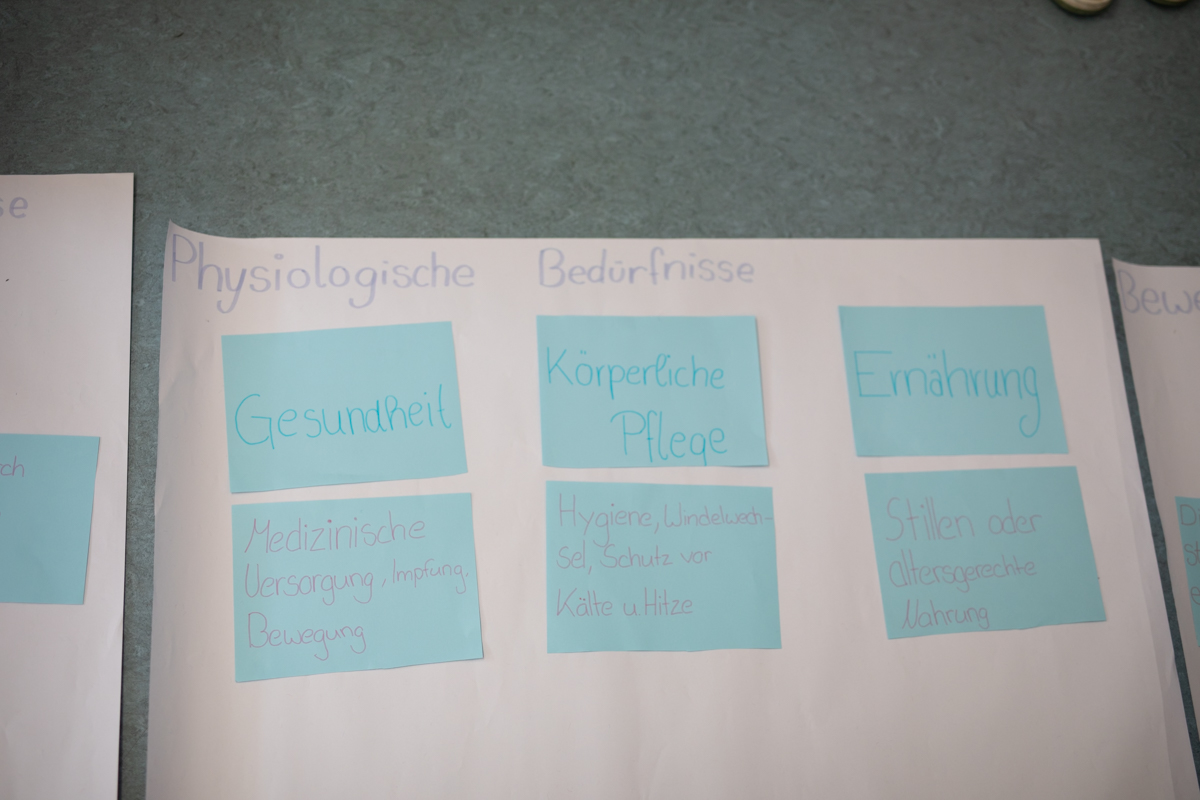 Physiologische Bedürfnisse
Gesundheit
Medizinische
Versorgung, Impfung,
Bewegung
Körperliche
Pflege
Hygiene, Windelwech-
sel, Schutz vor
Kälte u. Hitze
Ernährung
Stillen oder
altersgerechte
Nahrung